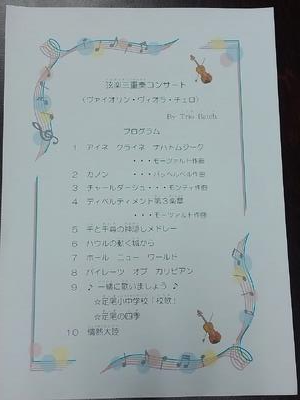 弦楽三重奏コンサート
(ヴァイオリン・ヴィオラ・チェロ)
By Trio
プログラム
1 アイネ クライネ ナハトムジーク
・・・モーツァルト作曲
2 カノン ・・・パッヘルベル作曲
3 チャールダーシュ・・・モンティ作曲
4 ディベルティメント第3楽章
・・・モーツァルト作曲
5 千と千尋の神隠しメドレー
6 ハウルの動く城から
7 ホール ニュー ワールド
8 パイレーツ オブ カリビアン
9 ♪ 一緒に歌いましょう ♪
☆定尾小中学校!校歌!
☆定尾の四季
10 情熱大陸